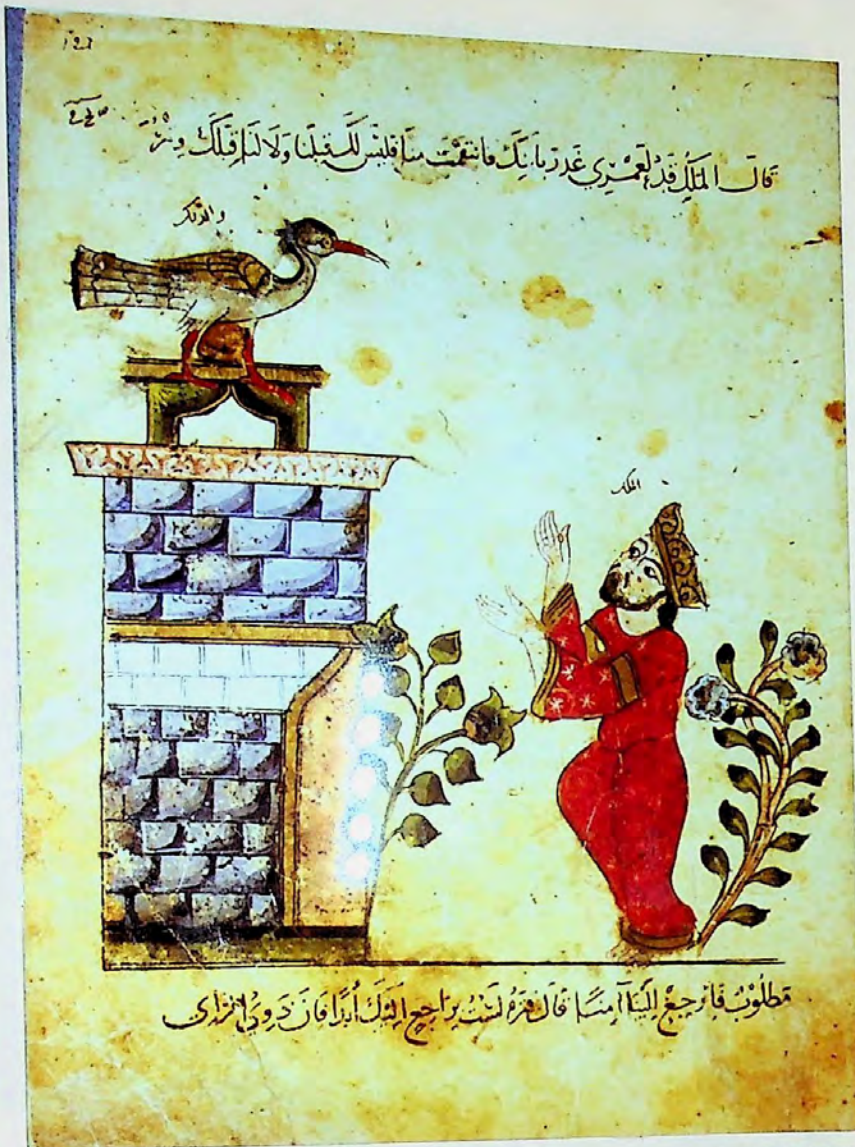 قال الملك قد لعمري غدر بابنك فانتقمت منا فليس لك قبلنا ولا لنا قبلك وتر
الملك
مطلوب فارجع إلينا آمنا قال فنزه لست براجع إليك أبدا فان ذوي الرأي